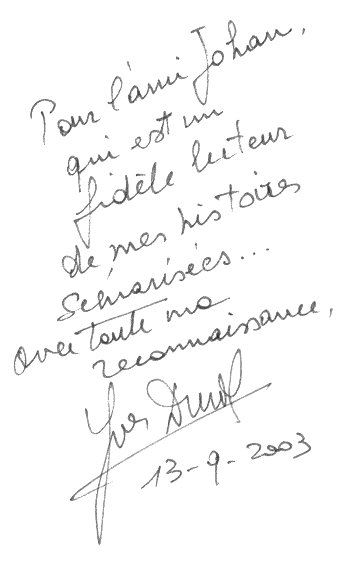 Pour l'ami Johan,
qui est un
fidèle lecteur
de mes histoires
scénarisées...
avec toute ma
reconnaissance,
Yves Duval
13-9-2003